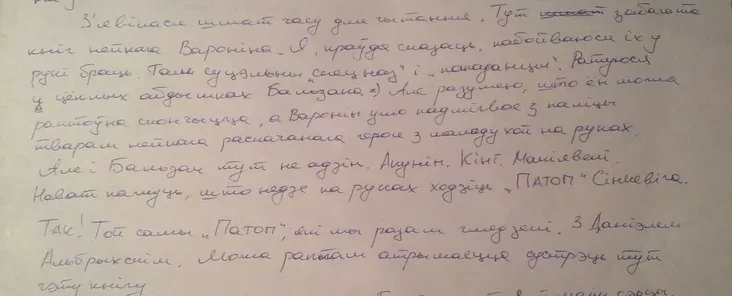 З'явілася шмат часу для чытання. Тут шмат забагата
кніг нейкага Вароніна. Я, праўда сказаць, набойваюся іх у
рукі браць. Там суцэльны „спецназ" і „попаданцы". Ратуюся
у цёплых абдымках Бальзака =) Але разумею, што ён можа
раптоўна скончыцца, а Варонін ужо падміргвае з паліцы
тварам нейкага распачанага героя з маладухой на руках.
Але і Бальзак тут не адзін. Акунін. Кінг. Макіявелі.
Нават кажуць, што недзе па руках ходзіць „ПАТОП" Сінкевіча.
ТАК! Той самы „ПАТОП", які мы разам глядзелі. З Даніэлем
Альбрыхскім. Можа раптам атрымаецца сустрэць тут
гэту кнігу.